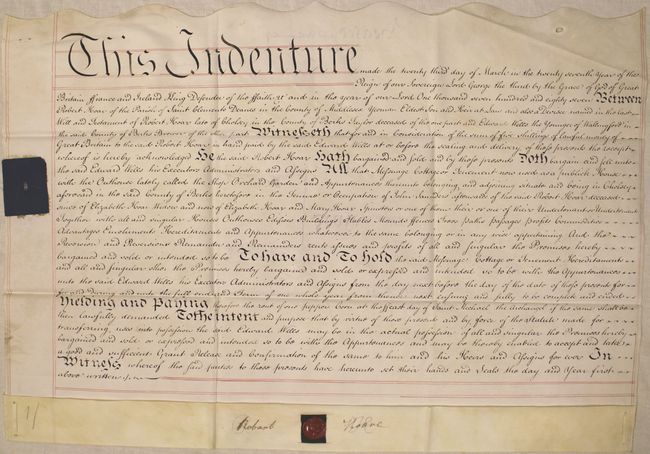 This Indenture made the twenty third day of March in the twenty seventh Year of the
Reign of our Sovereign Lord George the third by the Grace of God of Great
Britain ffrance and Ireland King Defender of the ffaith &c and in the year of our Lord One thousand seven hundred and eighty seven Between
Robert Hoar of the Parish of Saint Clements Deans in the County of Middlesex Yeoman Eldest Son and Heir at Law and also a Devisee named in the last
Will and Testament of Robert Hoar late of Cholsey in the County of Berks Taylor deceased of the one part and Edward Wells the Younger of Wallingford in
the said County of Berks Brewer of the other part Witnesseth that for and in Consideration of the sum of five shillings of lawful money of
Great Britain to the said Robert Hoar in hand paid by the said Edward Wells at or before the sealing and delivery of these presents the receipt
whereof is hereby acknowledged He the said Robert Hoar Hath bargained and sold and by these presents Doth bargain and sell unto
the said Edward Wells his Executors Administrators and Assigns All that Messuage Cottage or Tenement now used as a publick House
with the Outhouse lately called the Shop Orchard Garden and Appurtenances thereunto belonging and adjoining situate and being in Cholsey
aforesaid in the said County of Berks heretofore in the Tenure or Occupation of John Sanders afterwards of the said Robert Hoar deceased
since of Elizabeth Hoar Widow and now of Elizabeth Hoar and Mary Hoar Spinsters or one of them their or one of their Undertenant or Undertenants
Together with all and singular Houses Outhouses Edifices Buildings Stables Mounds ffences Trees paths passages profits Commodities
Advantages Emoluments Hereditaments and Appurtenances whatsoever to the same belonging or in any wise appertaining And the
Reversion and Reversions Remainder and Remainders rents issues and profits of all and singular the Premises hereby
bargained and sold or intended so to be To have and To hold the said Messuage Cottage or Tenement Hereditaments
and all and singular other the Premises hereby bargained and sold or expressed and intended so to be with the Appurtenances
unto the said Edward Wells his Executors Administrators and Assigns from the day next before the day of the date of these presents for
and during and unto the full end and Term of one whole year from thence next ensuing and fully to be compleat and ended
Yielding and Paying therefore the rent of one pepper Corn at the ffeast day of Saint Michael the Archangel if the same shall be
then lawfully demanded To the intent and purpose that by virtue of these presents and by force of the Statute made for
transferring uses into possession the said Edward Wells may be in the actual possession of all and singular the Premises hereby
bargained and sold or expressed and intended so to be with the Appurtenances and may be thereby enabled to accept and take
a good and sufficient Grant Release and Confirmation of the same to him and his Heirs and Assigns for ever In
Witness whereof the said parties to these presents have hereunto set their hands and Seals the day and Year first
above written
Robart Hoare